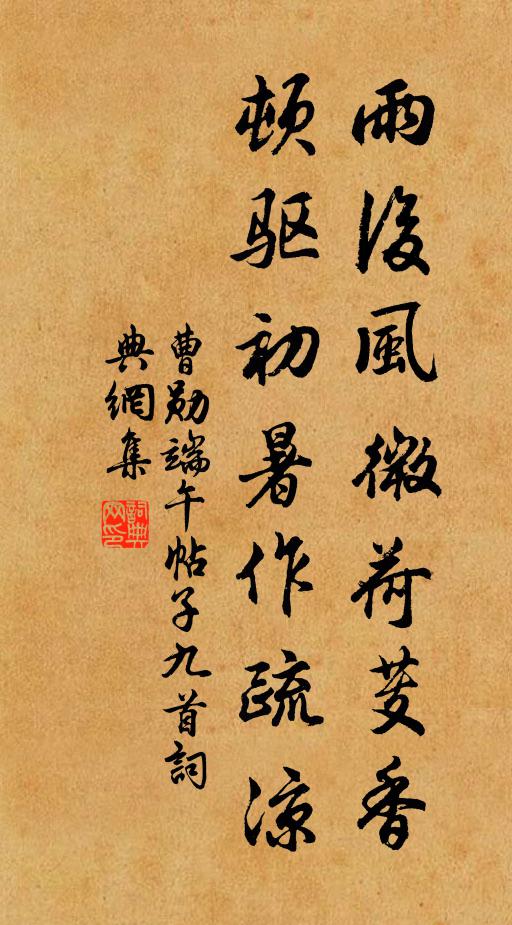 雨後風微荷芰香
頓驱初暑作疏涼
曹勛端午帖子九首詞
典網集
詞典
网印